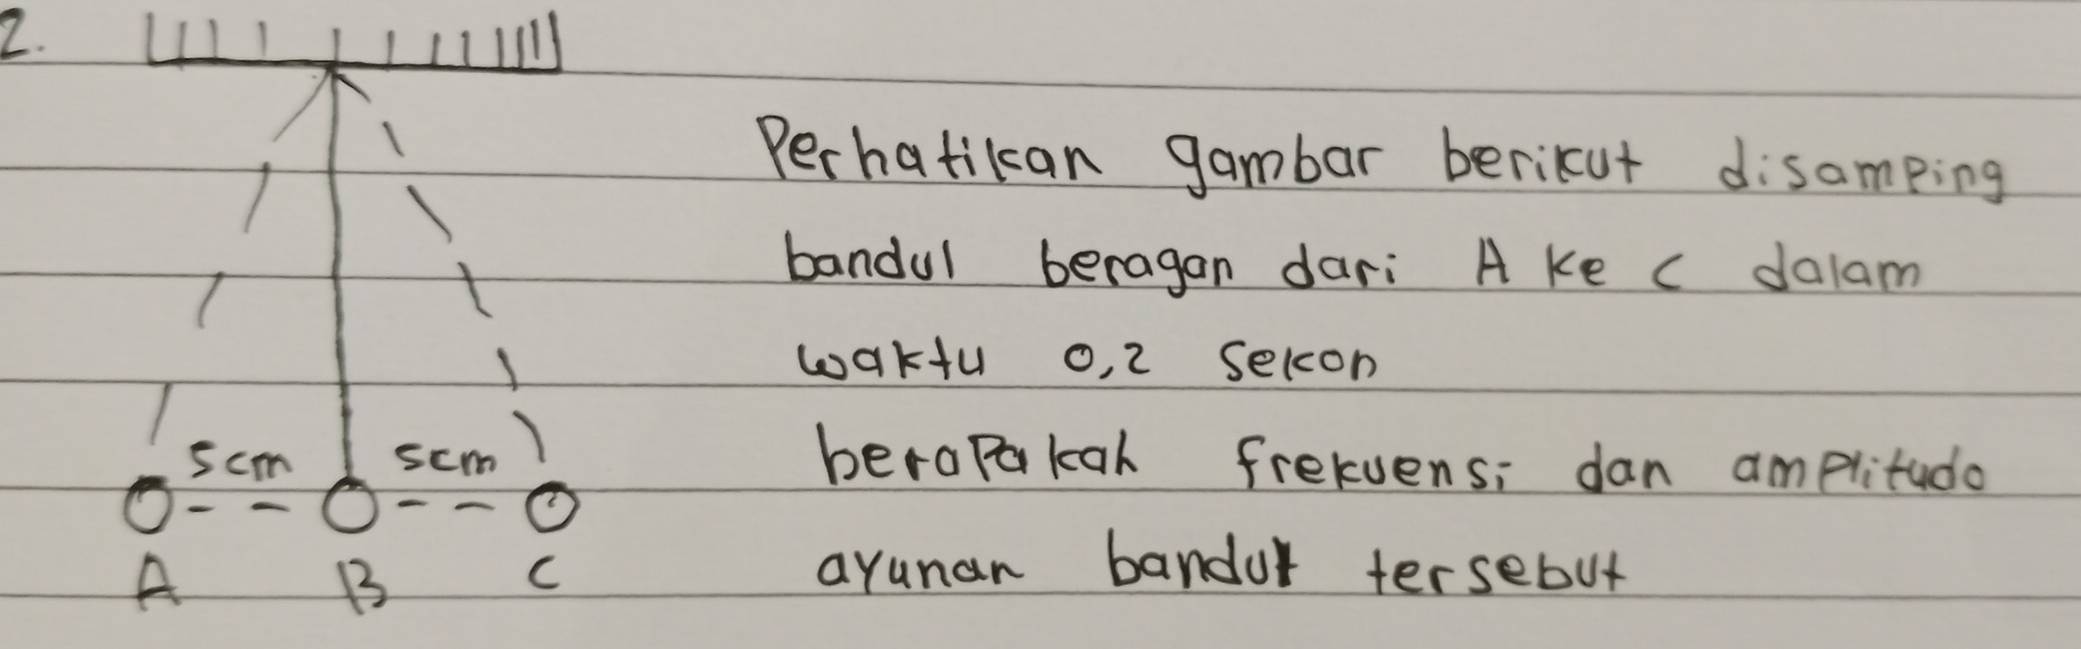 2.
Perhatikan gambar berikut disamping
bandul beragan dari A ke C dalam
waktu 0,2 sekon
berapakah frekuensi dan amplitudo
ayunan bandul tersebut
5cm 5cm
A B C